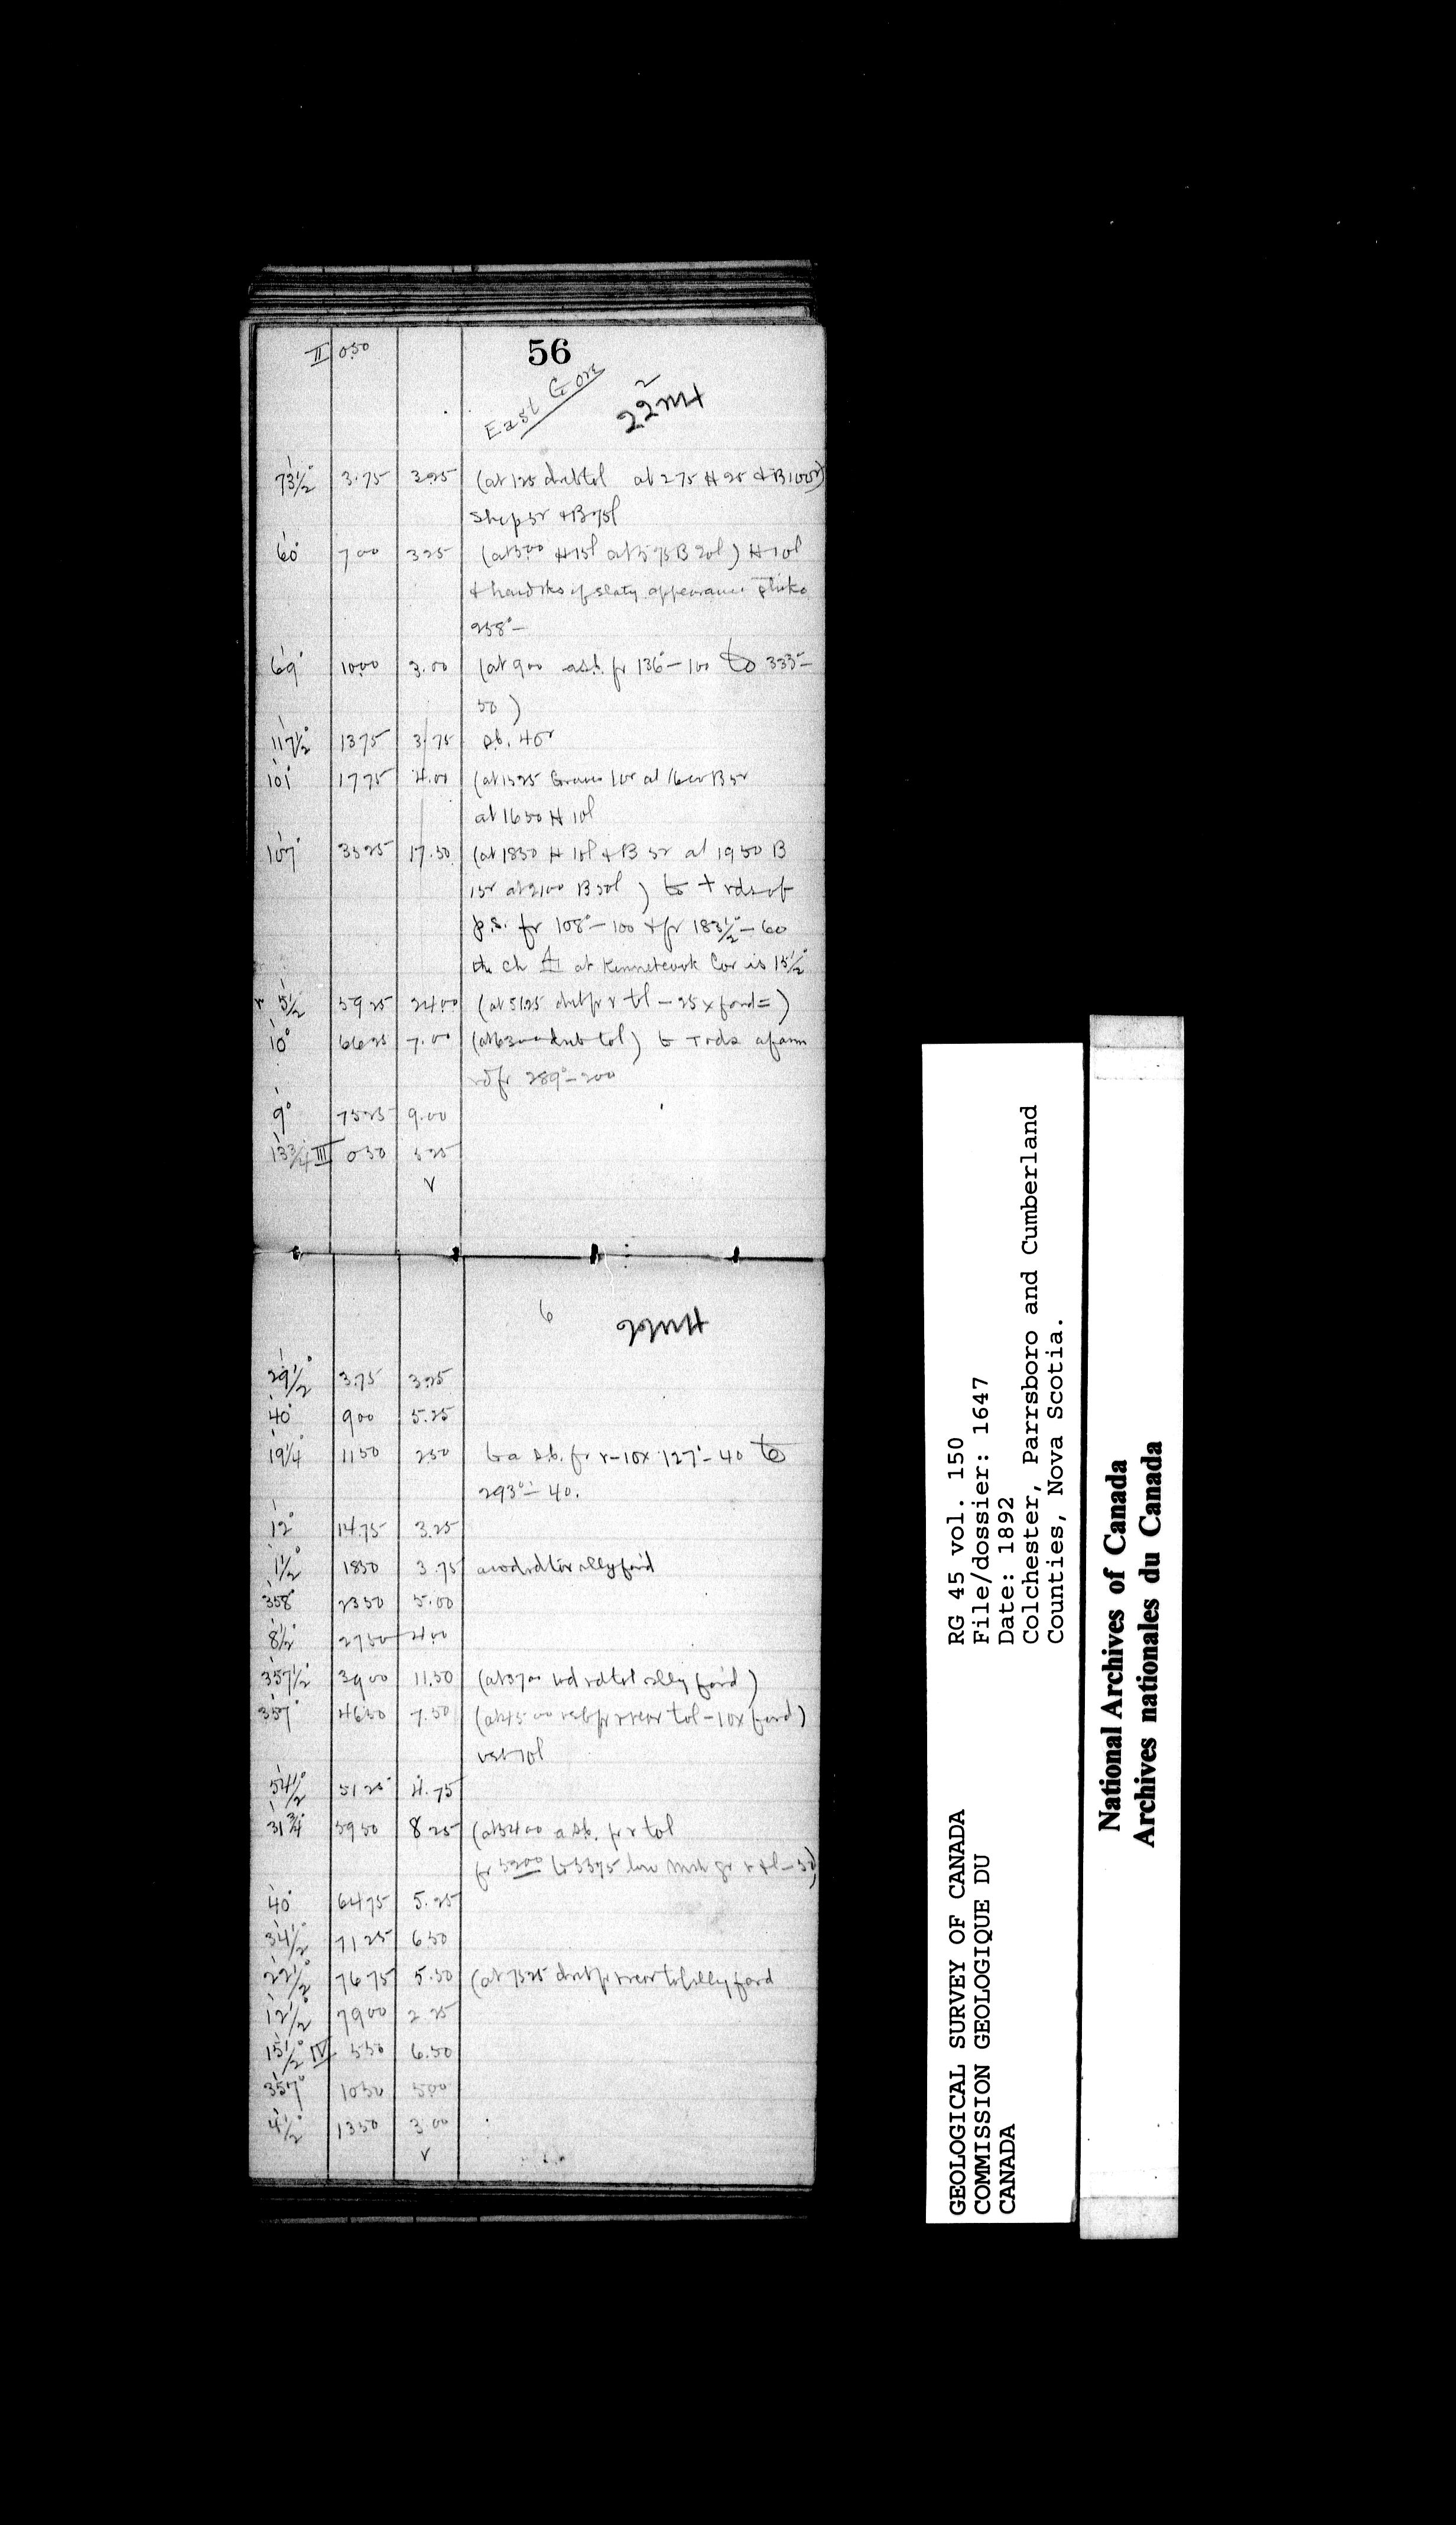 II 050
56
East Gore
73½° 3.75 325 (at 125 dnb tol at 275 H 25 & B 100r)
Shop 5r & B 75l
60° 700 325 (at 500 H 15l at 575 B 20l) H 10l
& hard rks of slaty appearance strike
258°–
69° 1000 3.00 (at 900 a s.b. fr 136°–100 to 333°–
50)
117½° 1375 3.75 s.b. 40r
101° 1775 4.00 (at 1525 10r at 1600 B 5r
at 1650 H 10l
107° 3525 17.50 (at 1850 H 10l & B 5r at 1950 B
15r at 2100 B 50l) to + rds of
p.s. fr 108°–100 & fr 183½°–60
the ch at Kennetcook Cor is 15½°
5½ 5925 2400 (at 5125 dnb fr r tol – 25 x ford=)
10° 6625 7.00 (at 6300 dnb tol) to T rds a farm
rd fr 289°–200
9° 7525 9.00
13¾ III 050 525
V
6
29½° 375 325
40° 900 5.25
19¼ 1150 250 to a s.b. fr r–10x 127°–40 to
293°–40.
12° 1475 3.25
1½° 1850 3.75
358° 2350 5.00
8½° 2750 400
357½° 3900 11.50 (at 3700 wd rd tol ally ford)
357° 4650 7.50 (at 4500 vsb fr rear tol – 10x ford)
vsb 70l
54½° 5125 4.75
31¾° 5950 8.25 (at 5400 a sb. fr r tol
fr 5200 to 5375 low r & l – 50)
40° 6475 5.25
34½° 7125 6.50
22½° 7675 5.50 (at 7525 dnb fr rear tol ally ford
12½° 7900 2.25
15½° IV 550 6.50
357° 1050 500
4½° 1350 3.00
V
GEOLOGICAL SURVEY OF CANADA
COMMISSION GEOLOGIQUE DU
CANADA
RG 45 vol. 150
File/dossier: 1647
Date: 1892
Colchester, Parrsboro and Cumberland
Counties, Nova Scotia.
National Archives of Canada
Archives nationales du Canada